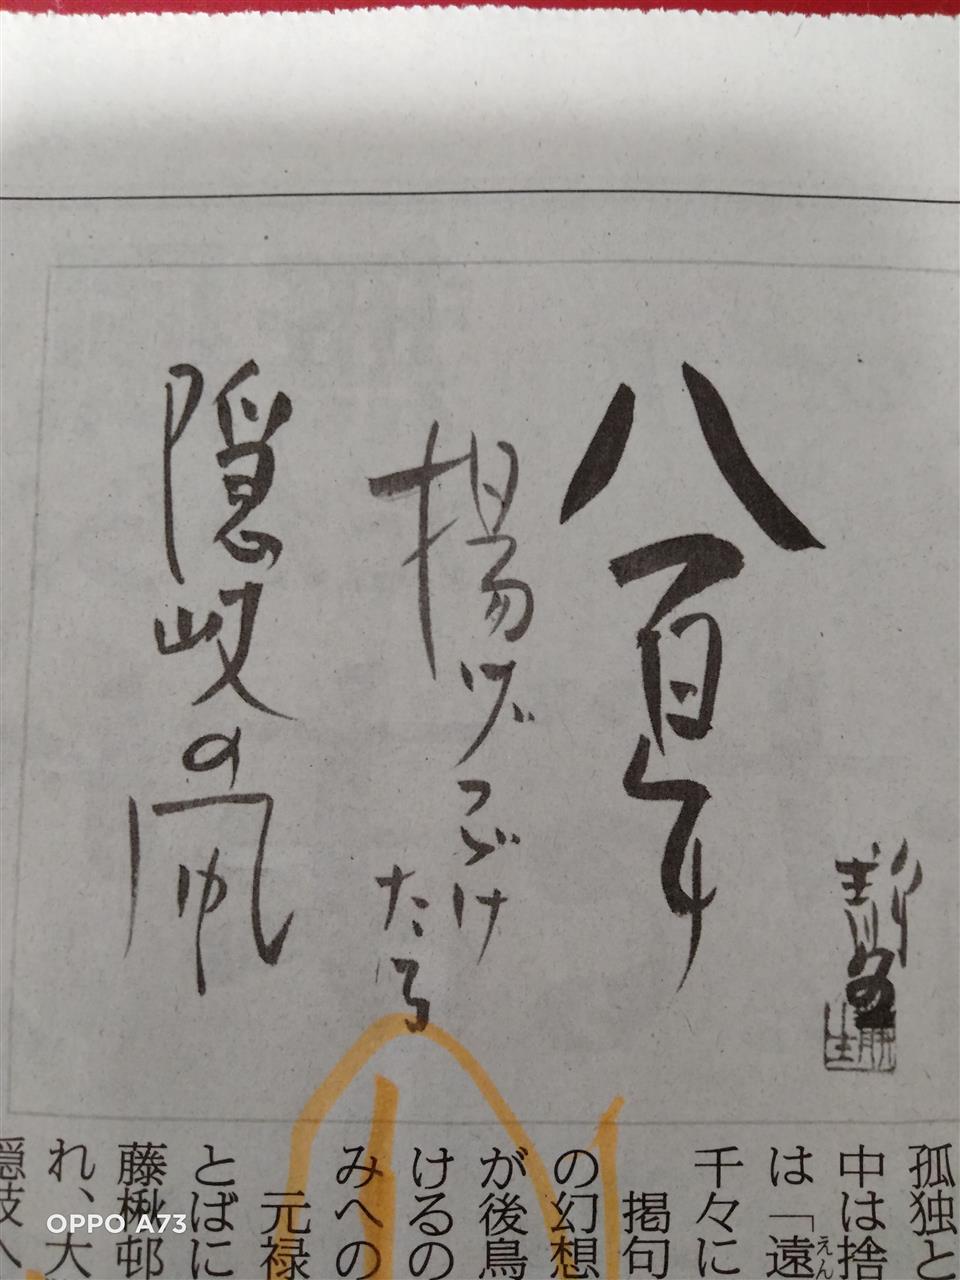 静生
八百年
揚げつゞけ
たる
隠岐の凧
孤独と
中は捨
は「遠
えん
千々に
掲句
の幻想
が後鳥
けるの
みへの
元禄
とばに
藤楸邨
れ、大
隠岐へ
OPPO A73